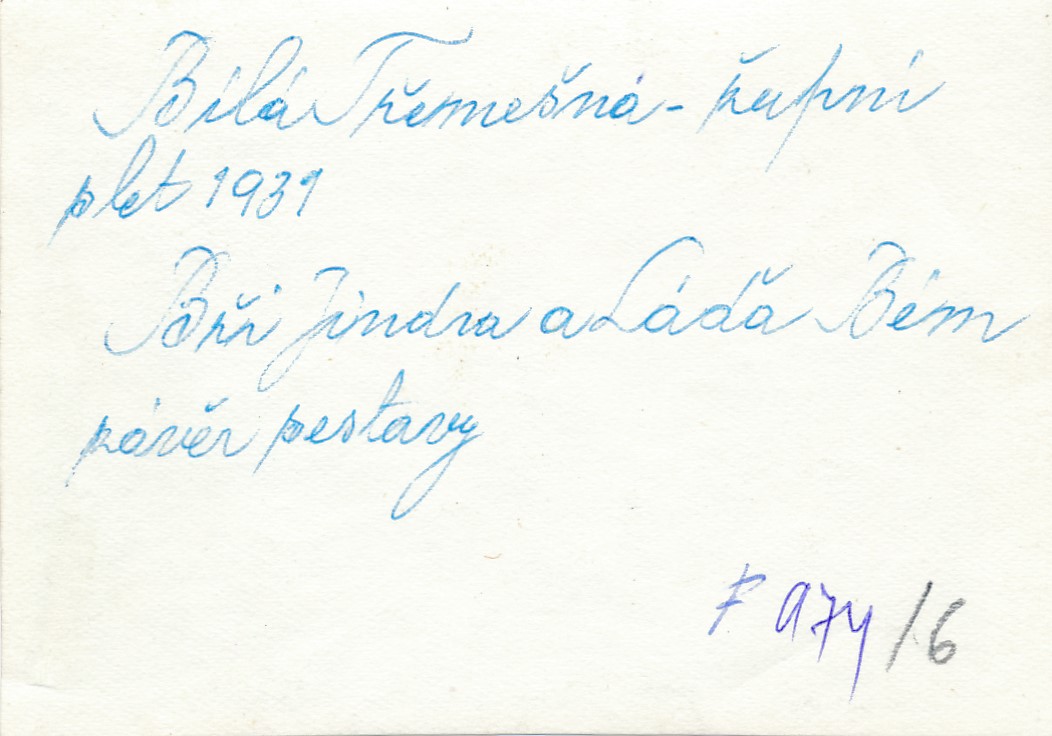 Bílá Třemešná - župní
slet 1931
Bři Jindra a Láďa Bém
závěr sestavy
F 974/6